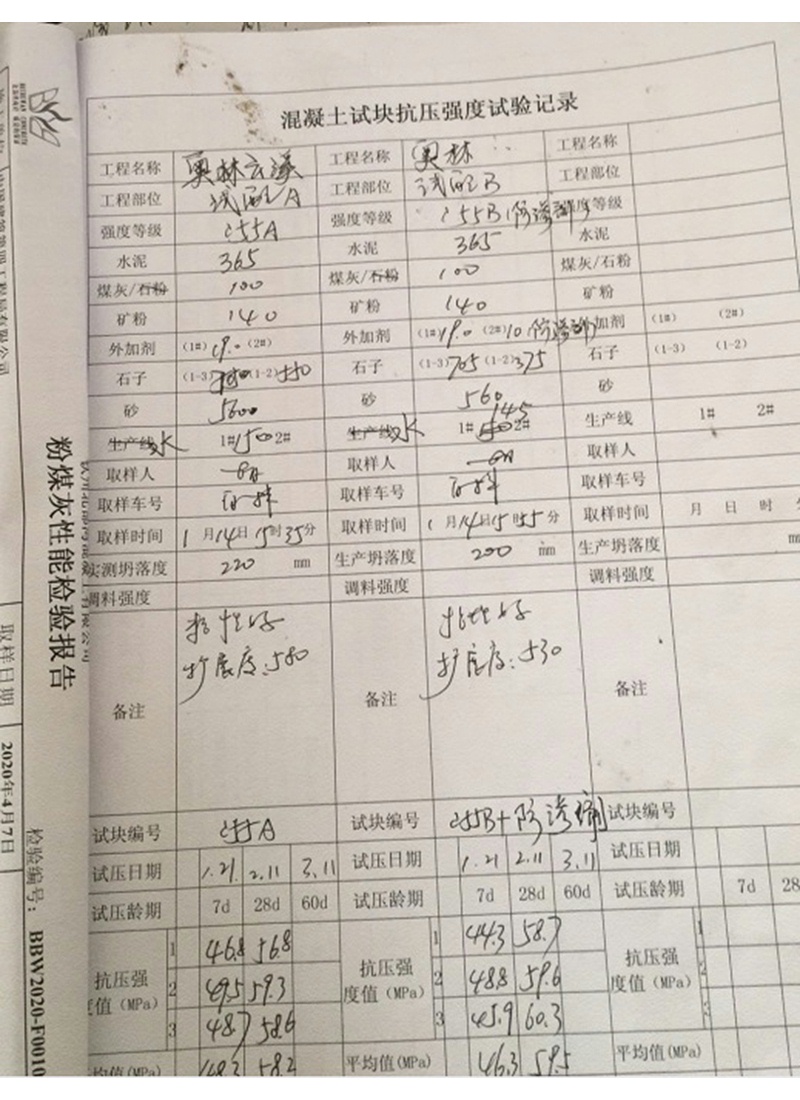 混凝土试块抗压强度试验记录
工程名称 奥林云溪 工程名称 奥林 工程名称
工程部位 试配A 工程部位 试配B 工程部位
强度等级 C55A 强度等级 C55B(防渗 强度等级
水泥 365 水泥 365 水泥
煤灰/石粉 100 煤灰/石粉 100 煤灰/石粉
矿粉 140 矿粉 140 矿粉
外加剂 (1#) 19.0 (2#) 外加剂 (1#) 19.0 (2#) 10 (防渗 外加剂 (1#) (2#)
石子 (1-3) (1-2) 550 石子 (1-3) 705 (1-2) 375 石子 (1-3) (1-2)
砂 砂 560 砂
生产线 水 1# 150 2# 生产线 水 1# 145 2# 生产线 1# 2#
取样人 取样人 取样人
取样车号 取样车号 取样车号
取样时间 1月14日15时35分 取样时间 1月14日15时55分 取样时间 月 日 时 分
实测坍落度 220 mm 生产坍落度 200 mm 生产坍落度 mm
调料强度 调料强度 调料强度
备注 和性好 备注 和性好 备注
扩展度:580 扩展度:530
试块编号 C55A 试块编号 C55B+防渗 试块编号
试压日期 1.21 2.11 3.11 试压日期 1.21 2.11 3.11 试压日期
试压龄期 7d 28d 60d 试压龄期 7d 28d 60d 试压龄期 7d 28
抗压强度值(MPa) 抗压强度值(MPa) 抗压强度值(MPa)
1 46.8 56.8 1 44.3 58.7 1
2 49.5 59.3 2 48.8 59.6 2
3 48.7 58.6 3 45.9 60.3 3
平均值(MPa) 48.3 58.2 平均值(MPa) 46.3 59.5 平均值(MPa)
粉煤灰性能检验报告
检验编号：BBW2020-F0010
取样日期 2020年4月7日